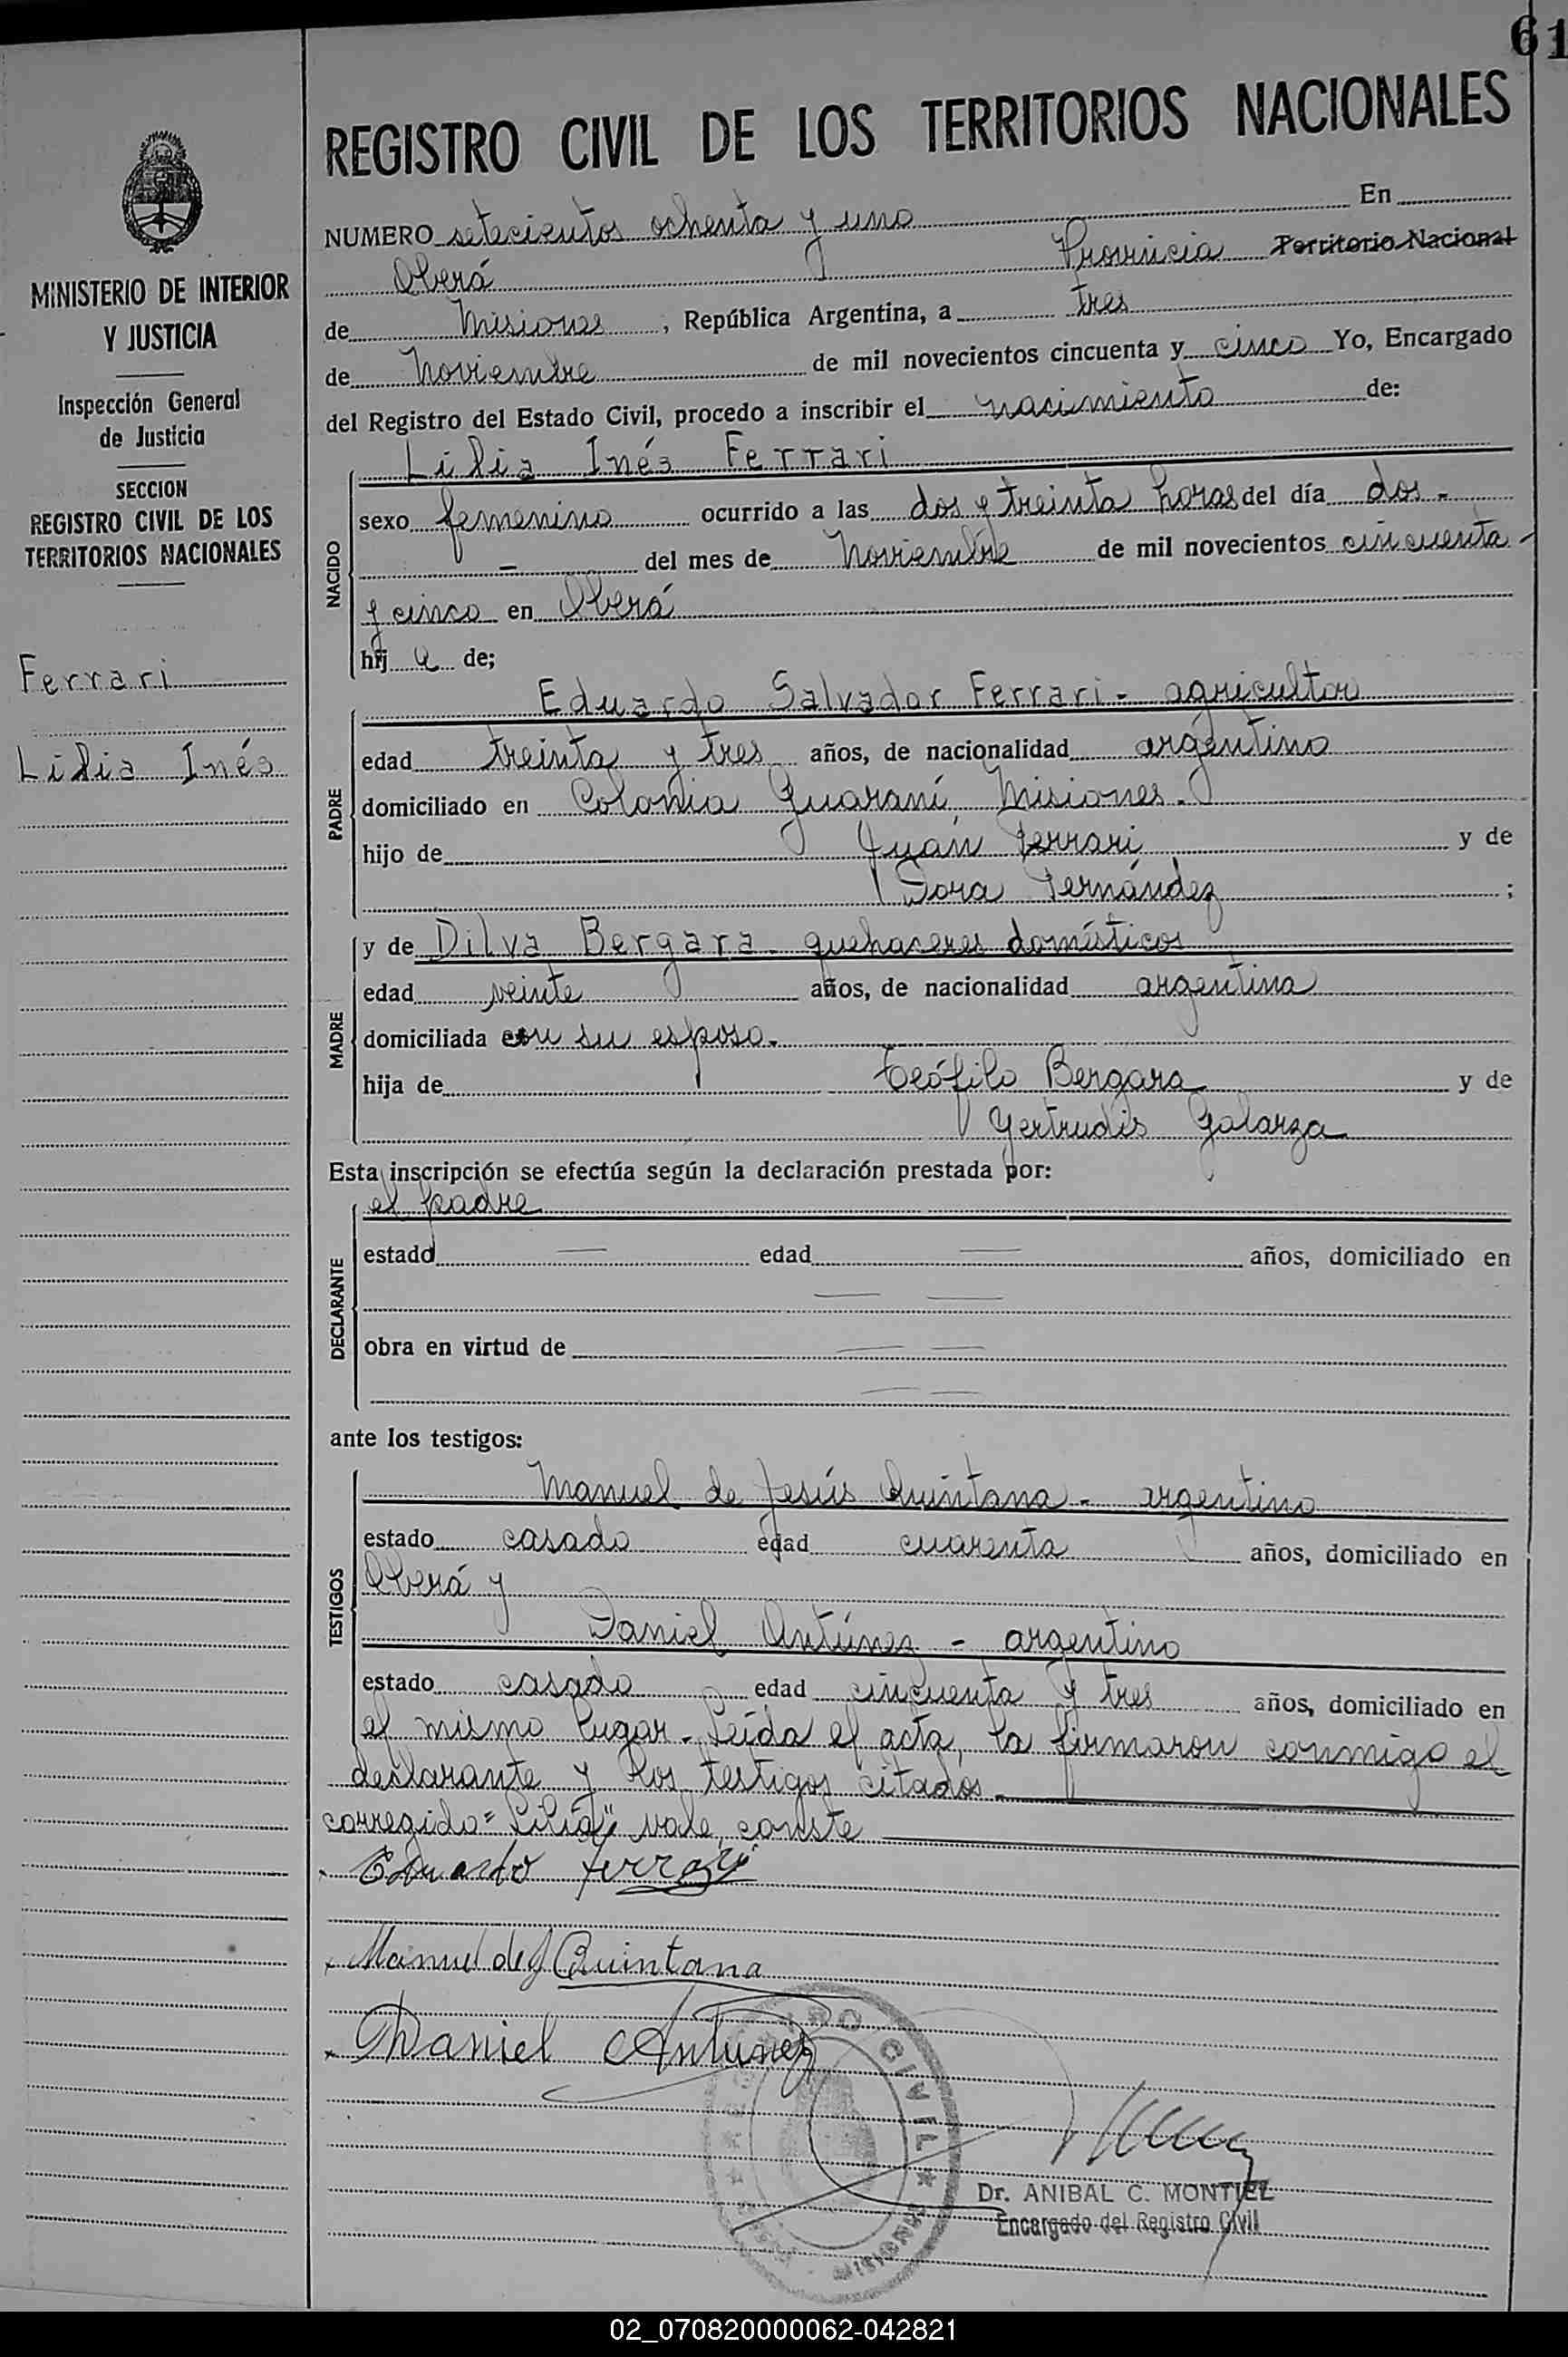 61
REGISTRO CIVIL DE LOS TERRITORIOS NACIONALES
MINISTERIO DE INTERIOR
Y JUSTICIA
Inspección General
de Justicia
SECCION
REGISTRO CIVIL DE LOS
TERRITORIOS NACIONALES
Ferrari
Lilia Inés
NUMERO setecientos ochenta y uno En
Oberá Provincia Territorio Nacional
de Misiones, República Argentina, a tres
de Noviembre de mil novecientos cincuenta y cinco Yo, Encargado
del Registro del Estado Civil, procedo a inscribir el nacimiento de:
NACIDO
Lilia Inés Ferrari
sexo femenino ocurrido a las dos y treinta horas del día dos -
- del mes de Noviembre de mil novecientos cincuenta -
y cinco en Oberá
hij a de;
PADRE
Eduardo Salvador Ferrari - agricultor
edad treinta y tres años, de nacionalidad argentino
domiciliado en Colonia Guaraní Misiones.
hijo de Juan Ferrari y de
Dora Fernández ;
MADRE
y de Dilva Bergara - quehaceres domésticos
edad veinte años, de nacionalidad argentina
domiciliada con su esposo.
hija de Teófilo Bergara y de
Gertrudis Galarza
Esta inscripción se efectúa según la declaración prestada por:
DECLARANTE
el padre
estado — edad — años, domiciliado en
— —
obra en virtud de — —
— —
ante los testigos:
TESTIGOS
Manuel de Jesús Quintana - argentino
estado casado edad cuarenta años, domiciliado en
Oberá y
Daniel Antúnez - argentino
estado casado edad cincuenta y tres años, domiciliado en
el mismo lugar - Leída el acta, la firmaron conmigo el
declarante y los testigos citados
corregido "Lilia" vale, conste
Eduardo Ferrari
Manuel de J Quintana
Daniel Antunez
REGISTRO CIVIL
MISIONES
Dr. ANIBAL C. MONTIEL
Encargado del Registro Civil
02_070820000062-042821